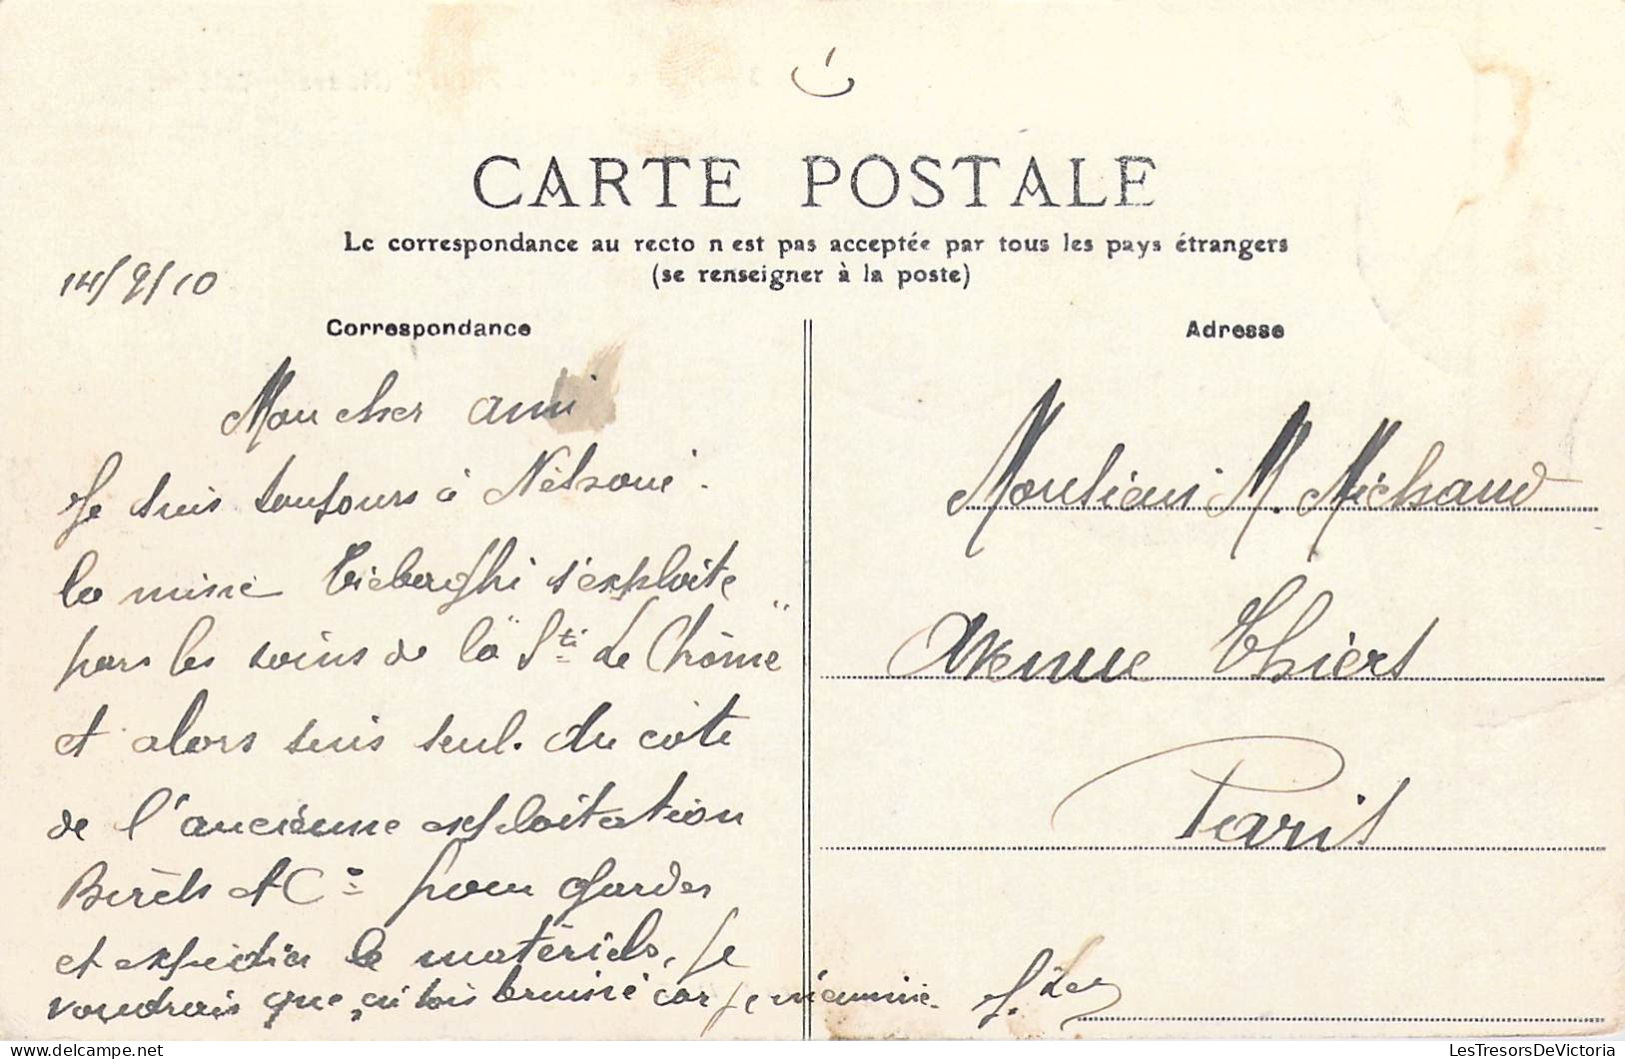 CARTE POSTALE
Le correspondance au recto n est pas acceptée par tous les pays étrangers
(se renseigner à la poste)
14/9/10
Correspondance
Adresse
Mon cher ami
Je suis toujours à Néhoué.
la mine Tiébaghi s'exploite
par les soins de la "Sté Le Chrôme"
et alors suis seul du côté
de l'ancienne exploitation
et Cie pour garder
et expédier le matériels, Je
voudrais que ça soit car je m'ennuie
Monsieur M. Michaud
Avenue Thiers
Paris
LesTresorsDeVictoria
LesTresorsDeVictoria.com